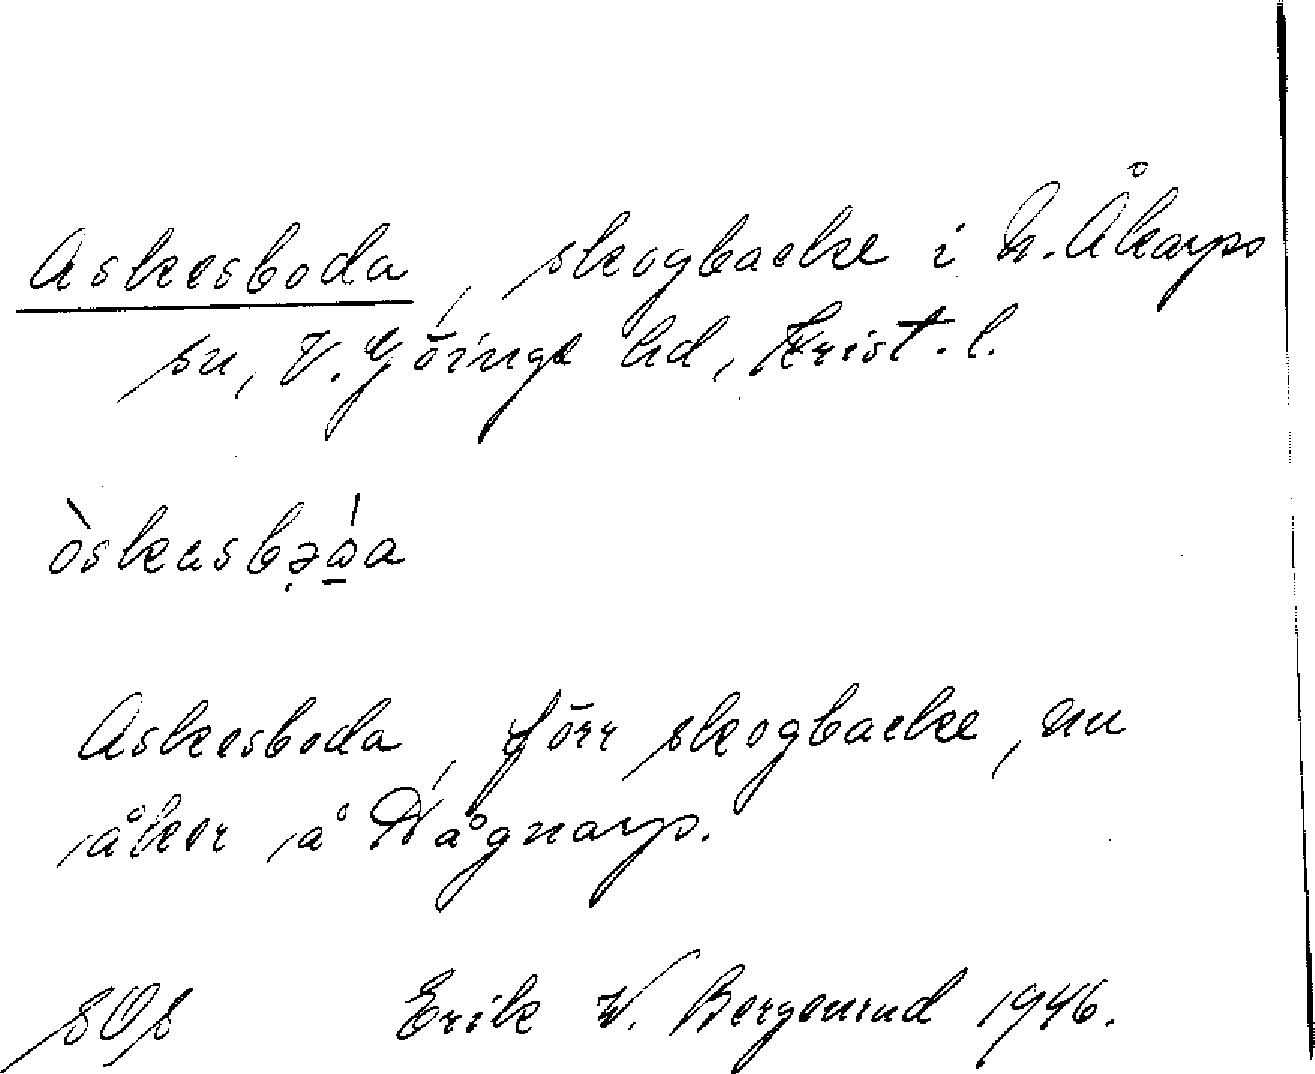 Askesboda, skogbacke i N. Åkarps
sn, V. Göinge hd, Krist. l.
Askesboda, förr skogbacke, nu
åker å Vågnarp.
Erik W. Bergenrud 1946.